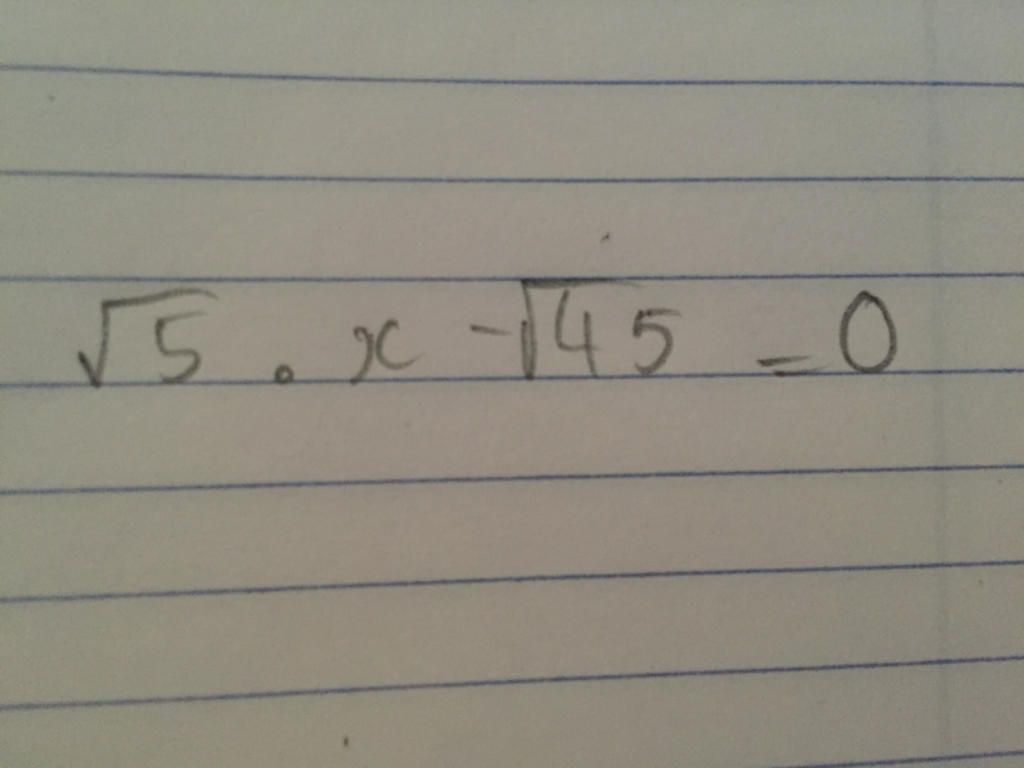 √5 . x - √45 = 0